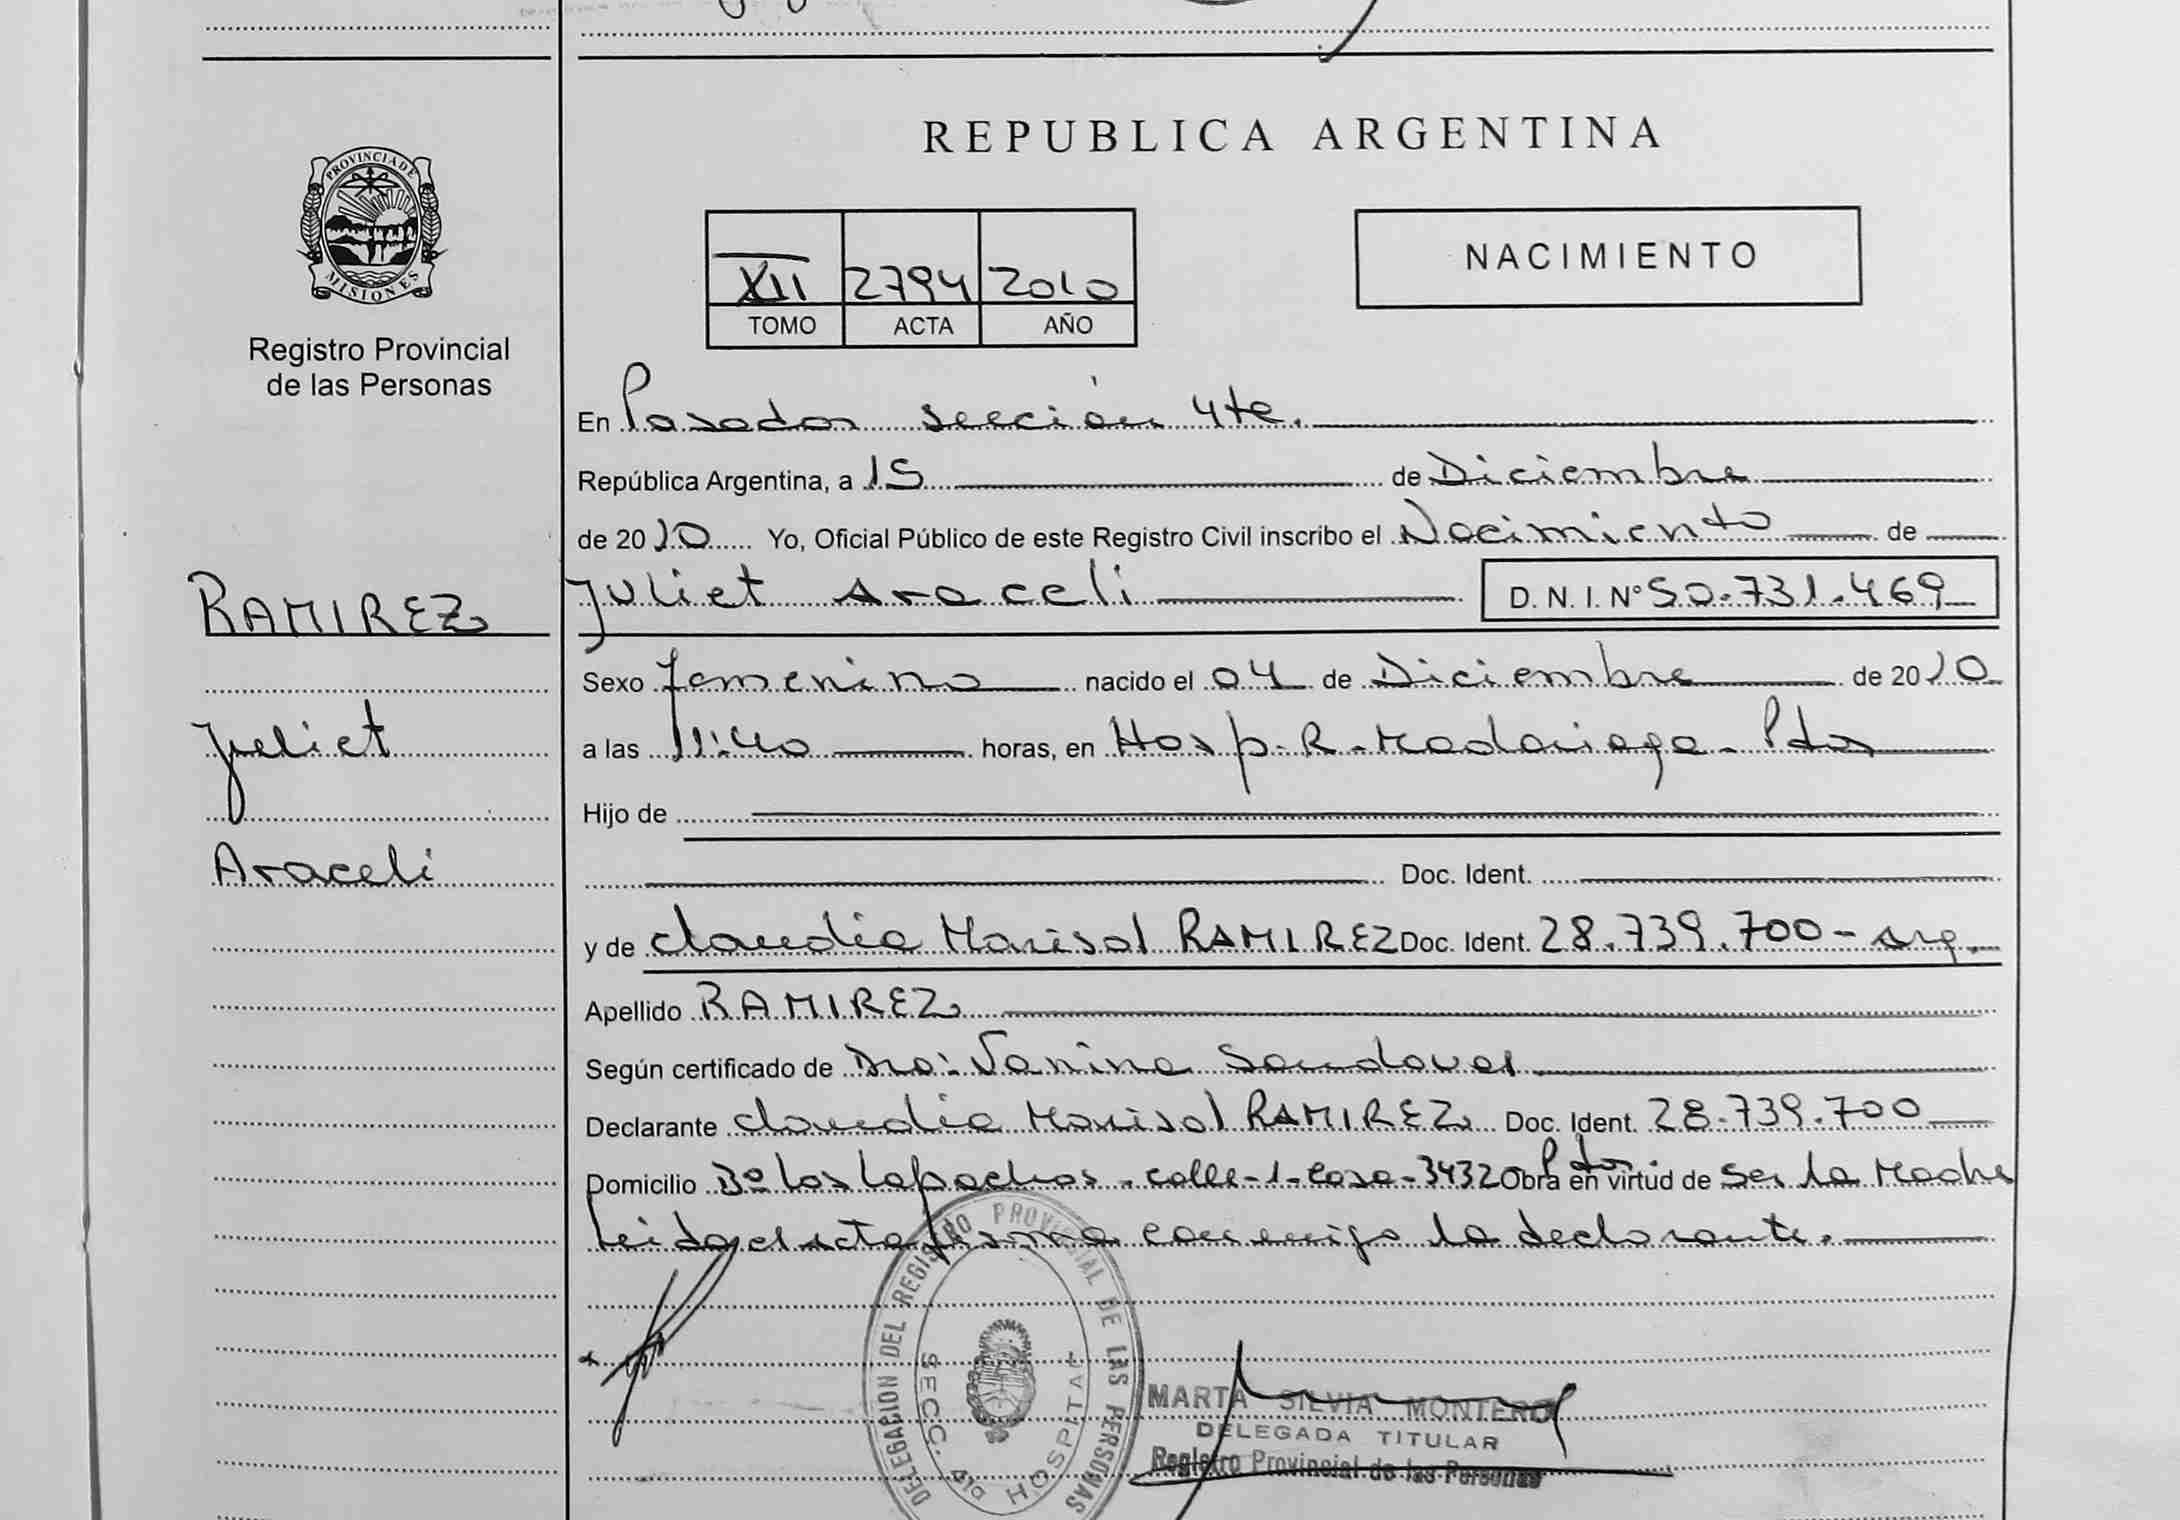 REPUBLICA ARGENTINA
PROVINCIA DE
MISIONES
Registro Provincial
de las Personas
XII 2794 2010
TOMO ACTA AÑO
NACIMIENTO
En Posadas sección 4ta.
República Argentina, a 15 de Diciembre
de 2010 Yo, Oficial Público de este Registro Civil inscribo el Nacimiento de
RAMIREZ
Juliet
Araceli
Juliet Araceli D. N. I. N° 50.731.469
Sexo femenino nacido el 04 de Diciembre de 2010
a las 11:40 horas, en Hosp. R. Madariaga - Pdas
Hijo de
Doc. Ident.
y de Claudia Marisol RAMIREZ Doc. Ident. 28.739.700 - arg.
Apellido RAMIREZ
Según certificado de Dra: Vanina Sandoval
Declarante Claudia Marisol RAMIREZ Doc. Ident. 28.739.700
Domicilio Bº Los Lapachos - calle - 1 - casa - 3432 Pdas. Obra en virtud de ser la Madre
leida el acta firma conmigo la declarante.
DELEGACION DEL REGISTRO PROVINCIAL DE LAS PERSONAS
SECC. 4ta HOSPITAL
MARTA SILVIA MONTERO
DELEGADA TITULAR
Registro Provincial de las Personas